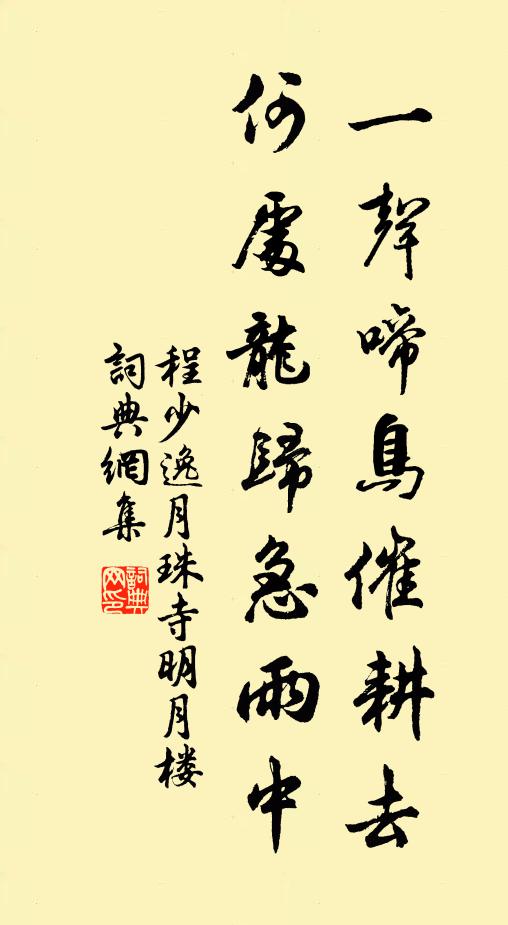 一聲啼鳥催耕去
何處龍歸急雨中
程少逸月珠寺明月楼
詞典網集
詞典网印